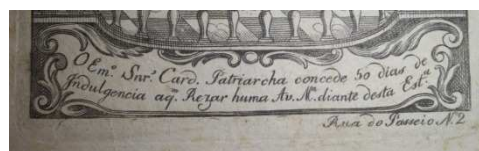 O Em.º Snr.º Card. Patriarcha concede 50 dias de
Indulgencia aq.m Rezar huma Av. M.ª diante desta Est.ª
Rua do Passeio N. 2